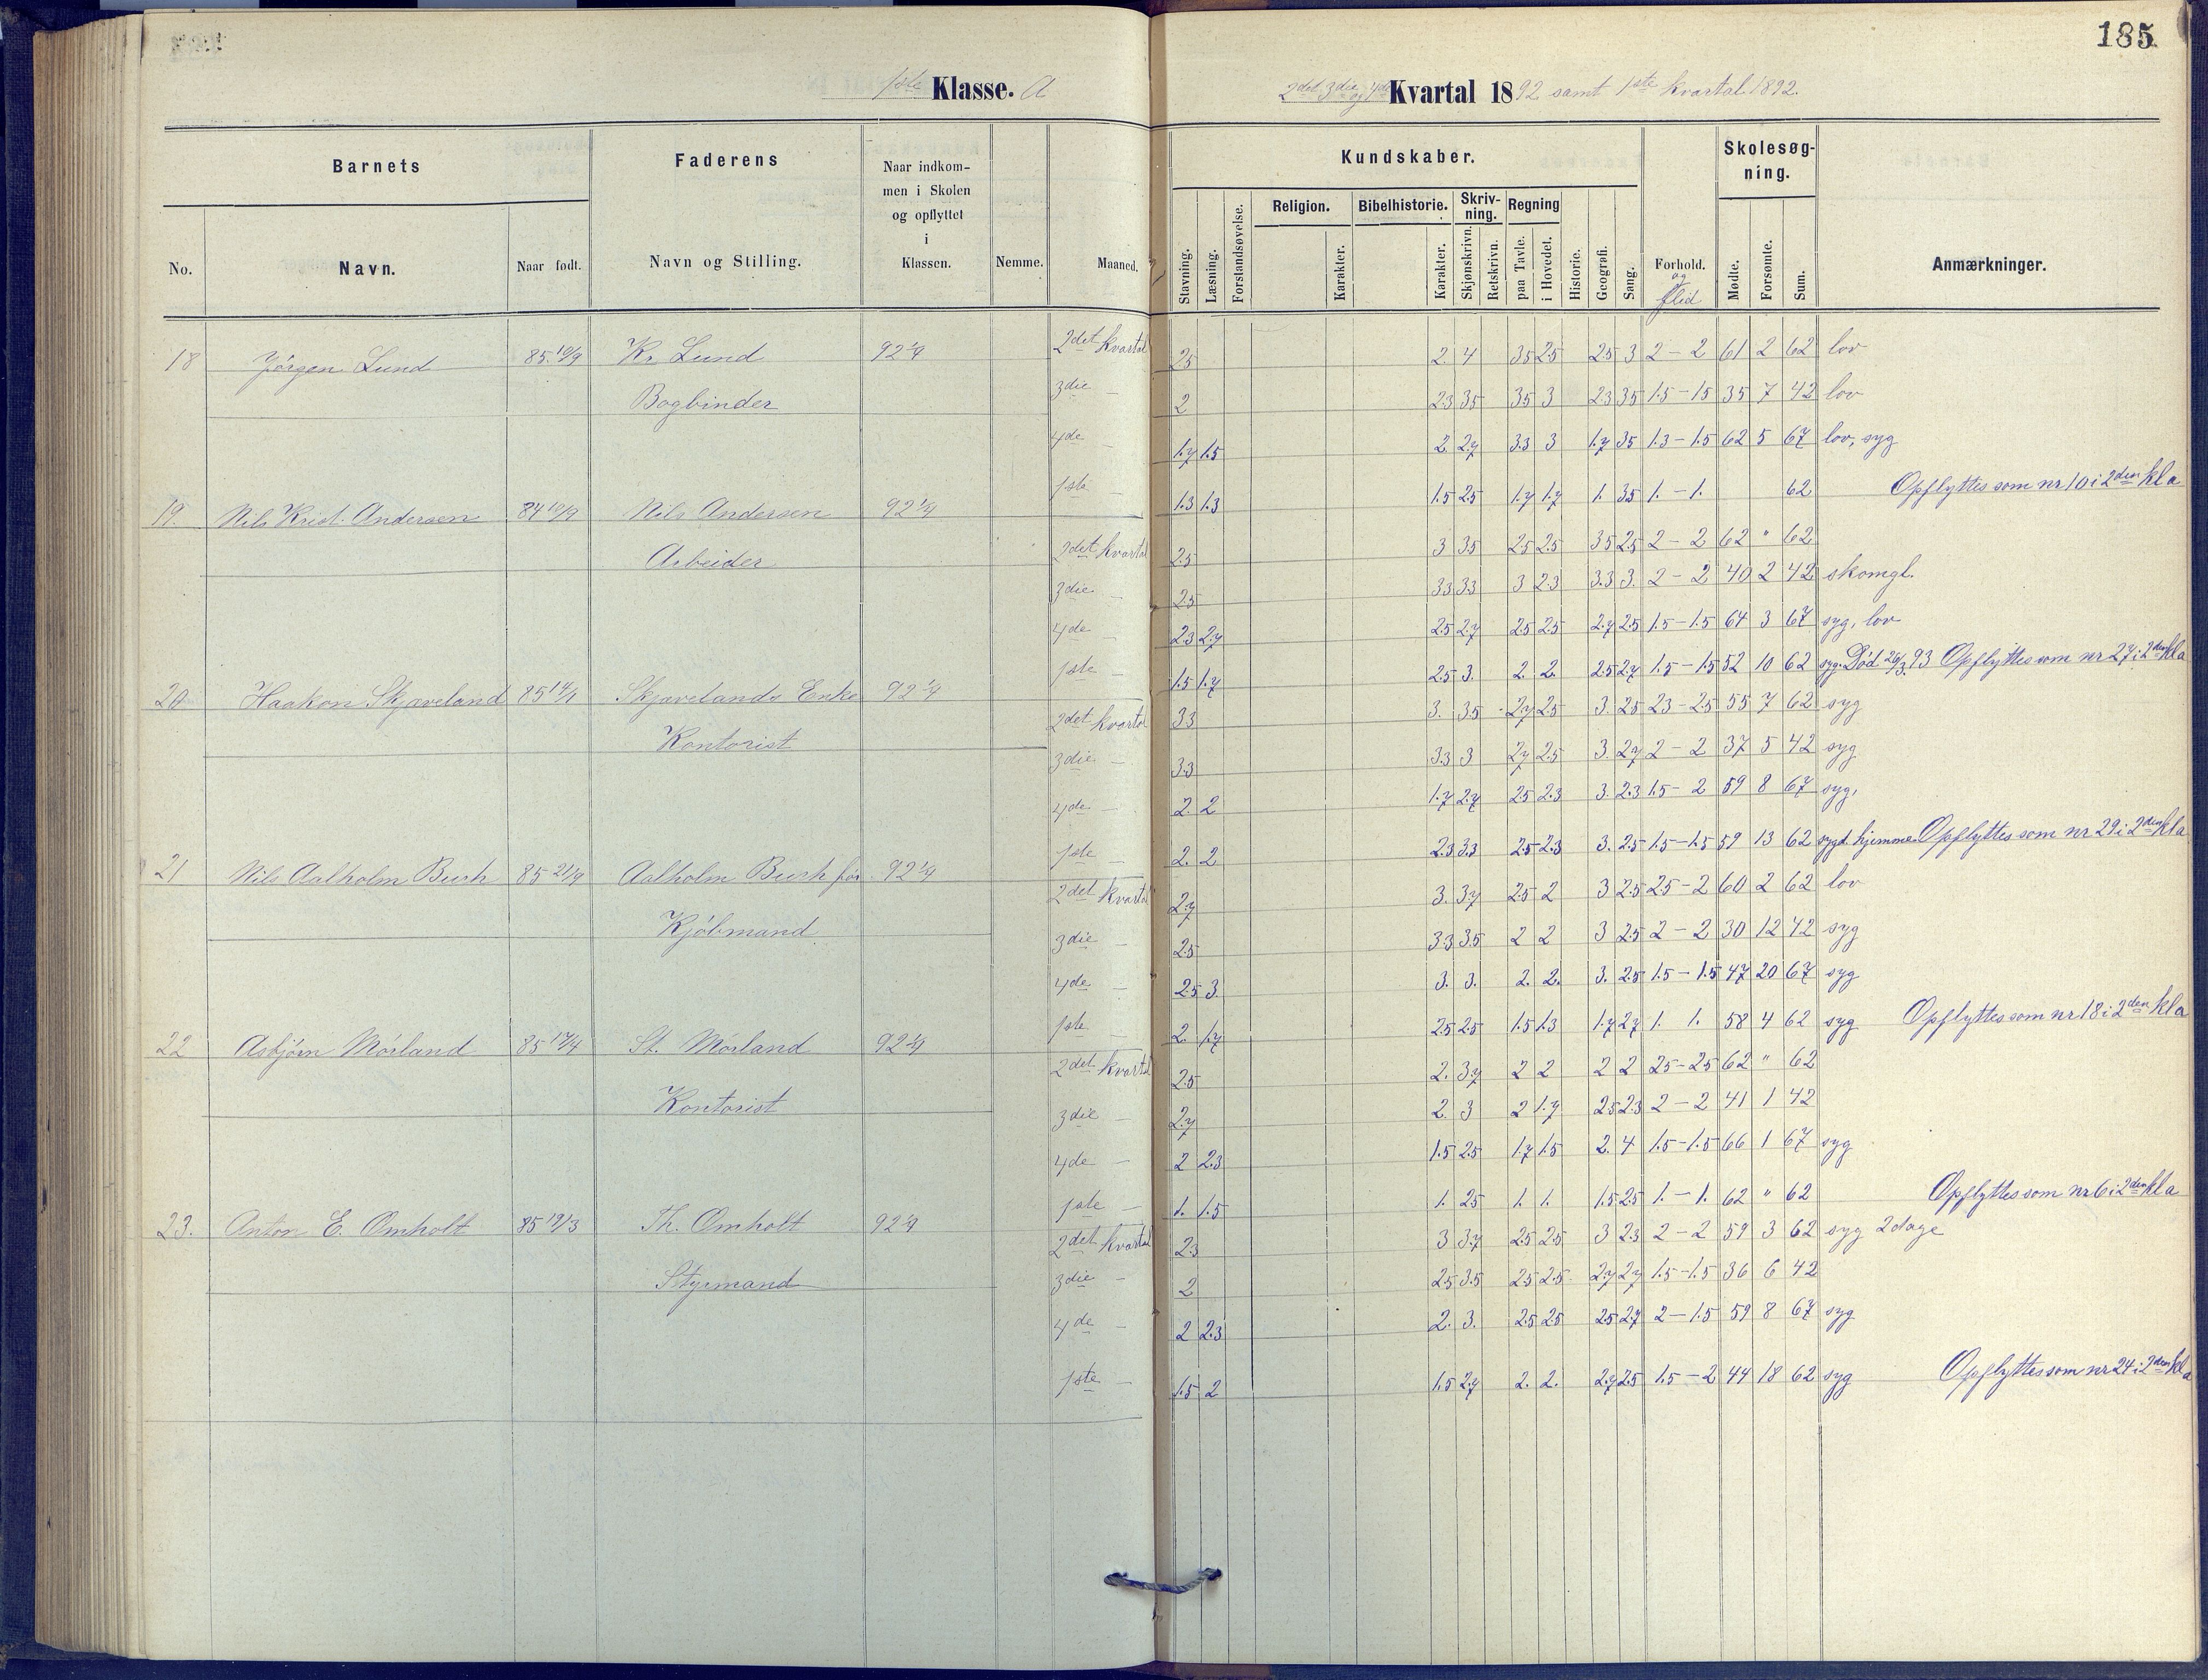 185
1ste Klasse. A
2det 3die og 4de Kvartal 1892 samt 1ste kvartal 1892.
Barnets
Faderens
Naar indkom-
men i Skolen
og opflyttet
i
Klassen.
Nemme.
Maaned.
Kundskaber.
Skolesøg-
ning.
No.
Navn.
Naar født.
Navn og Stilling.
Stavning.
Læsning.
Forstandsøvelse.
Religion.
Karakter.
Bibelhistorie.
Karakter.
Skriv-
ning.
Skjønskrivn.
Retskrivn.
Regning
paa Tavle.
i Hovedet.
Historie.
Geografi.
Sang.
Forhold.
og
flid
Mødte.
Forsømte.
Sum.
Anmærkninger.
18 Jörgen Lund 85 10/9 Kr. Lund 92 1/4 2det kvartal 25 2. 4 35 25 25 3 2-2 61 2 62 lov
Bogbinder 3die — 2 23 35 35 3 23 35 15-15 35 7 42 lov
4de — 1.7 1.5 2 27 33 3 1.7 35 1.3-1.5 62 5 67 lov, syg
1ste — 1.3 1.3 1.5 25 1.7 1.7 1. 35 1.-1. 62 Opflyttes som nr 10 i 2den kl a
19. Nils Krist. Andersen 84 10/9 Nils Andersen 92 1/4
Arbeider 2det kvartal 25 3 35 25 25 35 25 2-2 62 " 62
3die — 25 33 33 3 23 3.3 3. 2-2 40 2 42 skomgl.
4de — 23 27 25 27 25 25 2.7 25 1.5-1.5 64 3 67 syg, lov
1ste — 1.5 1.7 25 3. 2. 2. 25 27 1.5-1.5 52 10 62 syg. Död 26/3 93 Opflyttes som nr 27 i 2den kl a
20 Haakon Skjaveland 85 14/1 Skjavelands Enke 92 1/4
Kontorist 2det kvartal 33 3. 35 27 25 3. 25 23-25 55 7 62 syg
3die — 33 33 3 27 25 3. 27 2-2 37 5 42 syg
4de — 2. 2 1.7 27 25 23 3. 2.3 1.5-2 59 8 67 syg,
1ste — 2. 2 23 33 25 23 3. 25 1.5-1.5 59 13 62 sygd. hjemme. Opflyttes som nr 29 i 2den kl a
21 Nils Aalholm Bush 85 21/9 Aalholm Bush 92 1/4
Kjöbmand 2det kvartal 27 3. 37 25 2 3 25 25-2 60 2 62 lov
3die — 25 33 35 2 2 3 25 2-2 30 12 42 syg
4de — 25 3. 3. 3. 2. 2. 3. 25 1.5-1.5 47 20 67 syg
1ste — 2. 1.7 25 25 1.5 1.3 1.7 27 1. 1. 58 4 62 syg Opflyttes som nr 18 i 2den kl a
22 Asbjörn Mörland 85 17/4 St. Morland 92 1/4
Kontorist 2det kvartal 25 2. 37 2 2 2 2 25-25 62 " 62
3die — 27 2. 3 2 1.7 25 23 2-2 41 1 42
4de — 2 23 1.5 25 1.7 1.5 2. 4 1.5-1.5 66 1 67 syg
1ste — 1. 1.5 1. 25 1. 1. 1.5 25 1.-1. 62 " 62 Opflyttes som nr 6 i 2den kl a
23. Anton E. Omholt 85 19/3 Th. Omholt 92 1/4
Styrmand 2det kvartal 23 3 37 25 25 3 23 2-2 59 3 62 syg 2 dage
3die — 2 25 35 25 25 27 27 1.5-1.5 36 6 42
4de — 2 2.3 2. 3. 25 25 25 27 2-1.5 59 8 67 syg
1ste — 1.5 2 1.5 27 2. 2. 27 25 1.5-2 44 18 62 syg Opflyttes som nr 24 i 2den kl a